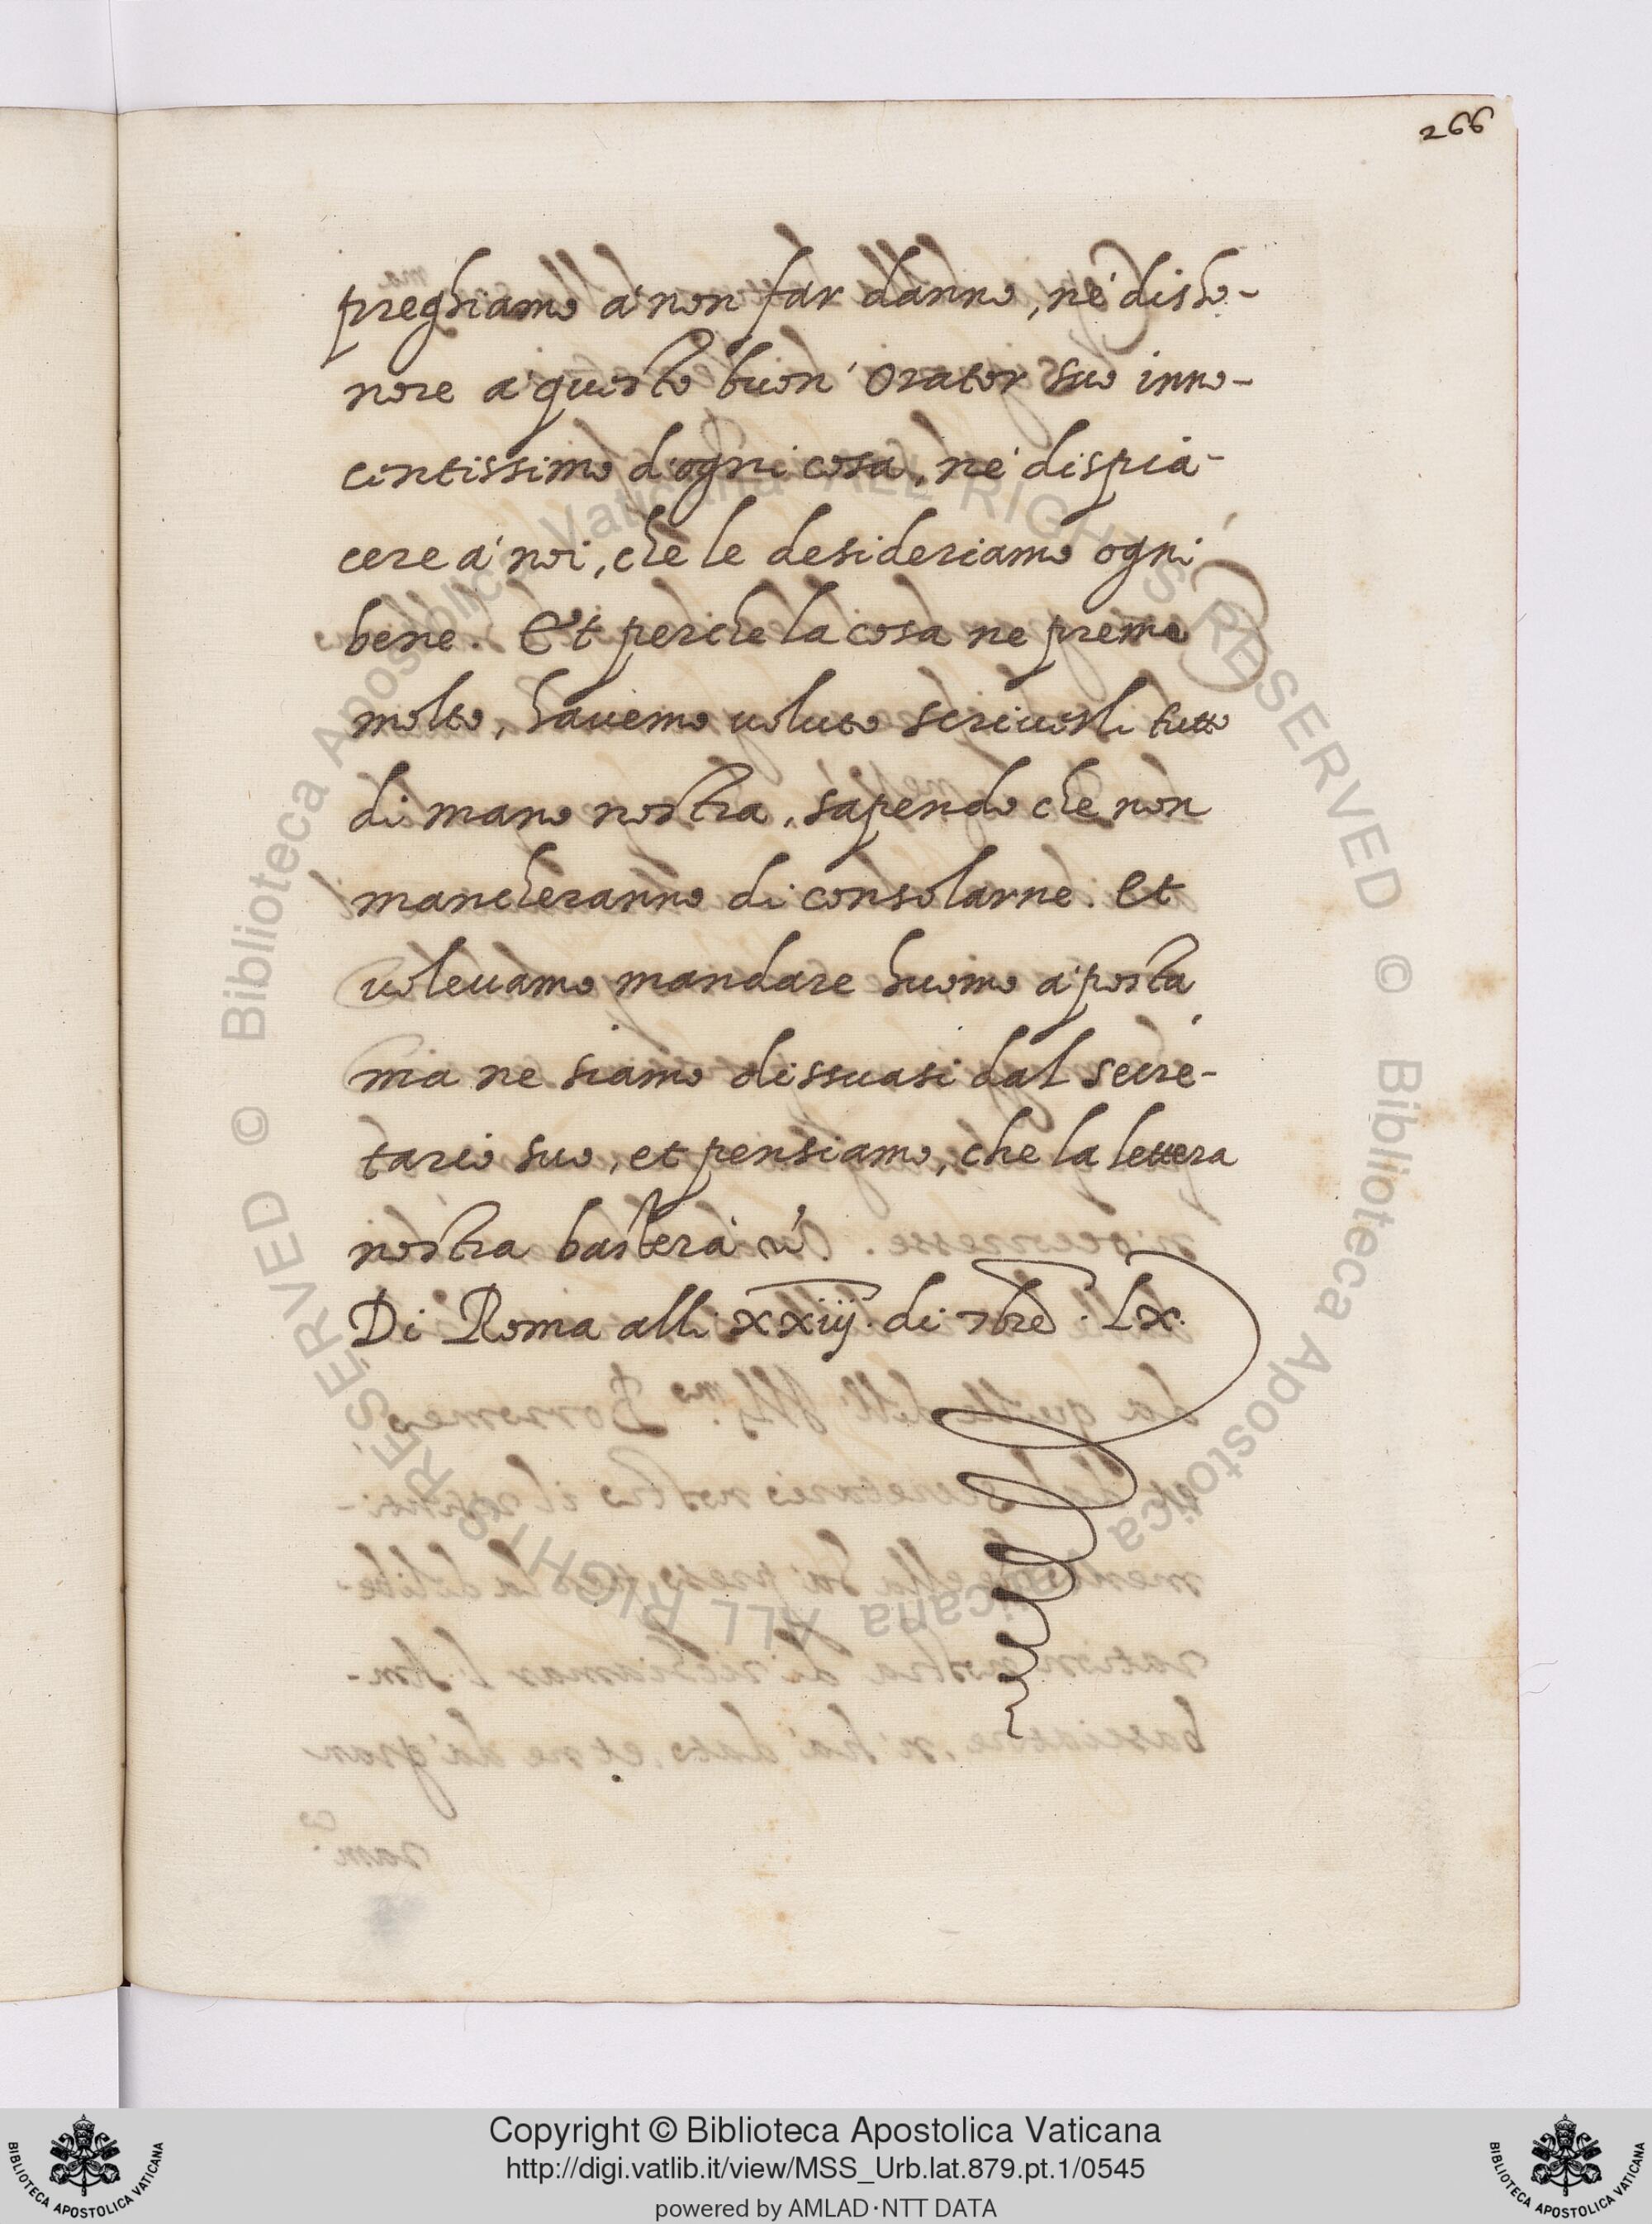 266
preghiamo à non far danno, né disho-
nore à questo buon' Orator suo inno-
centissimo d'ogni cosa, né dispia-
cere à noi, che le desideriamo ogni
bene. Et perche la cosa ne preme
molto, havemo voluto scriverli tutto
di mano nostra, sapendo che non
mancheranno di consolarne. Et
volevamo mandare huomo à posta
ma ne siamo dissuasi dal secre-
tario suo, et pensiamo, che la lettera
nostra basterà
Di Roma alli xxiij. di 7bre. Lx.
© Biblioteca Apostolica Vaticana ALL RIGHTS RESERVED
© Biblioteca Apostolica Vaticana ALL RIGHTS RESERVED
Copyright © Biblioteca Apostolica Vaticana
http://digi.vatlib.it/view/MSS_Urb.lat.879.pt.1/0545
powered by AMLAD·NTT DATA
BIBLIOTECA APOSTOLICA VATICANA
BIBLIOTECA APOSTOLICA VATICANA